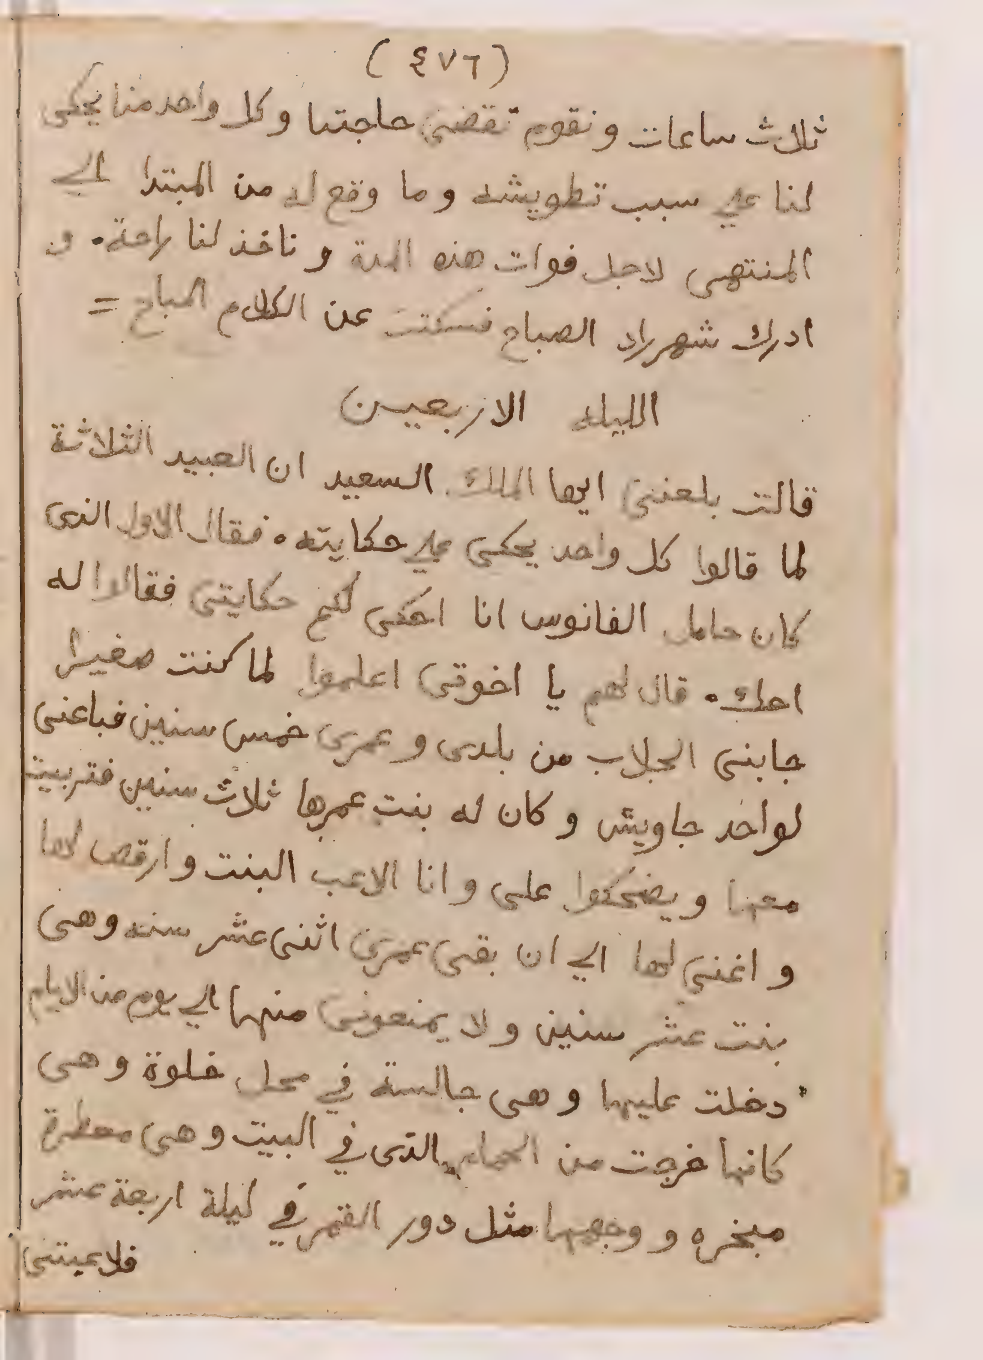 (٤٧٦)
ثلاث ساعات ونقوم تقضى حاجتنا وكل واحد منا يحكى
لنا على سبب تطويشه وما وقع له من المبتدا الى
المنتهى لاجل فوات هذه المدة وناخذ لنا راحة. و
ادرك شهرزاد الصباح فسكتت عن الكلام المباح =
الليله الاربعين
قالت بلغنى ايها الملك السعيد ان العبيد الثلاثة
لما قالوا كل واحد يحكى على حكايته. فقال الاول الذى
كان حامل الفانوس انا احكى لكم حكايتى فقالوا له
احك. قال لهم يا اخوتى اعلموا لما كنت صغيرا
جابنى الجلاب من بلدى وعمرى خمس سنين فباعنى
لواحد جاويش وكان له بنت عمرها ثلاث سنين فتربيت
معها ويضحكوا على وانا الاعب البنت وارقص لها
واغنى لها الى ان بقى عمرى اثنى عشر سنه وهى
بنت عشر سنين ولا يمنعونى منها الى يوم من الايام
دخلت عليها وهى جالسة في محل خلوة وهى
كانها خرجت من الحمام الذى في البيت وهى معطرة
مبخره ووجهها مثل دور القمر في ليلة اربعة عشر
فلاعبتنى